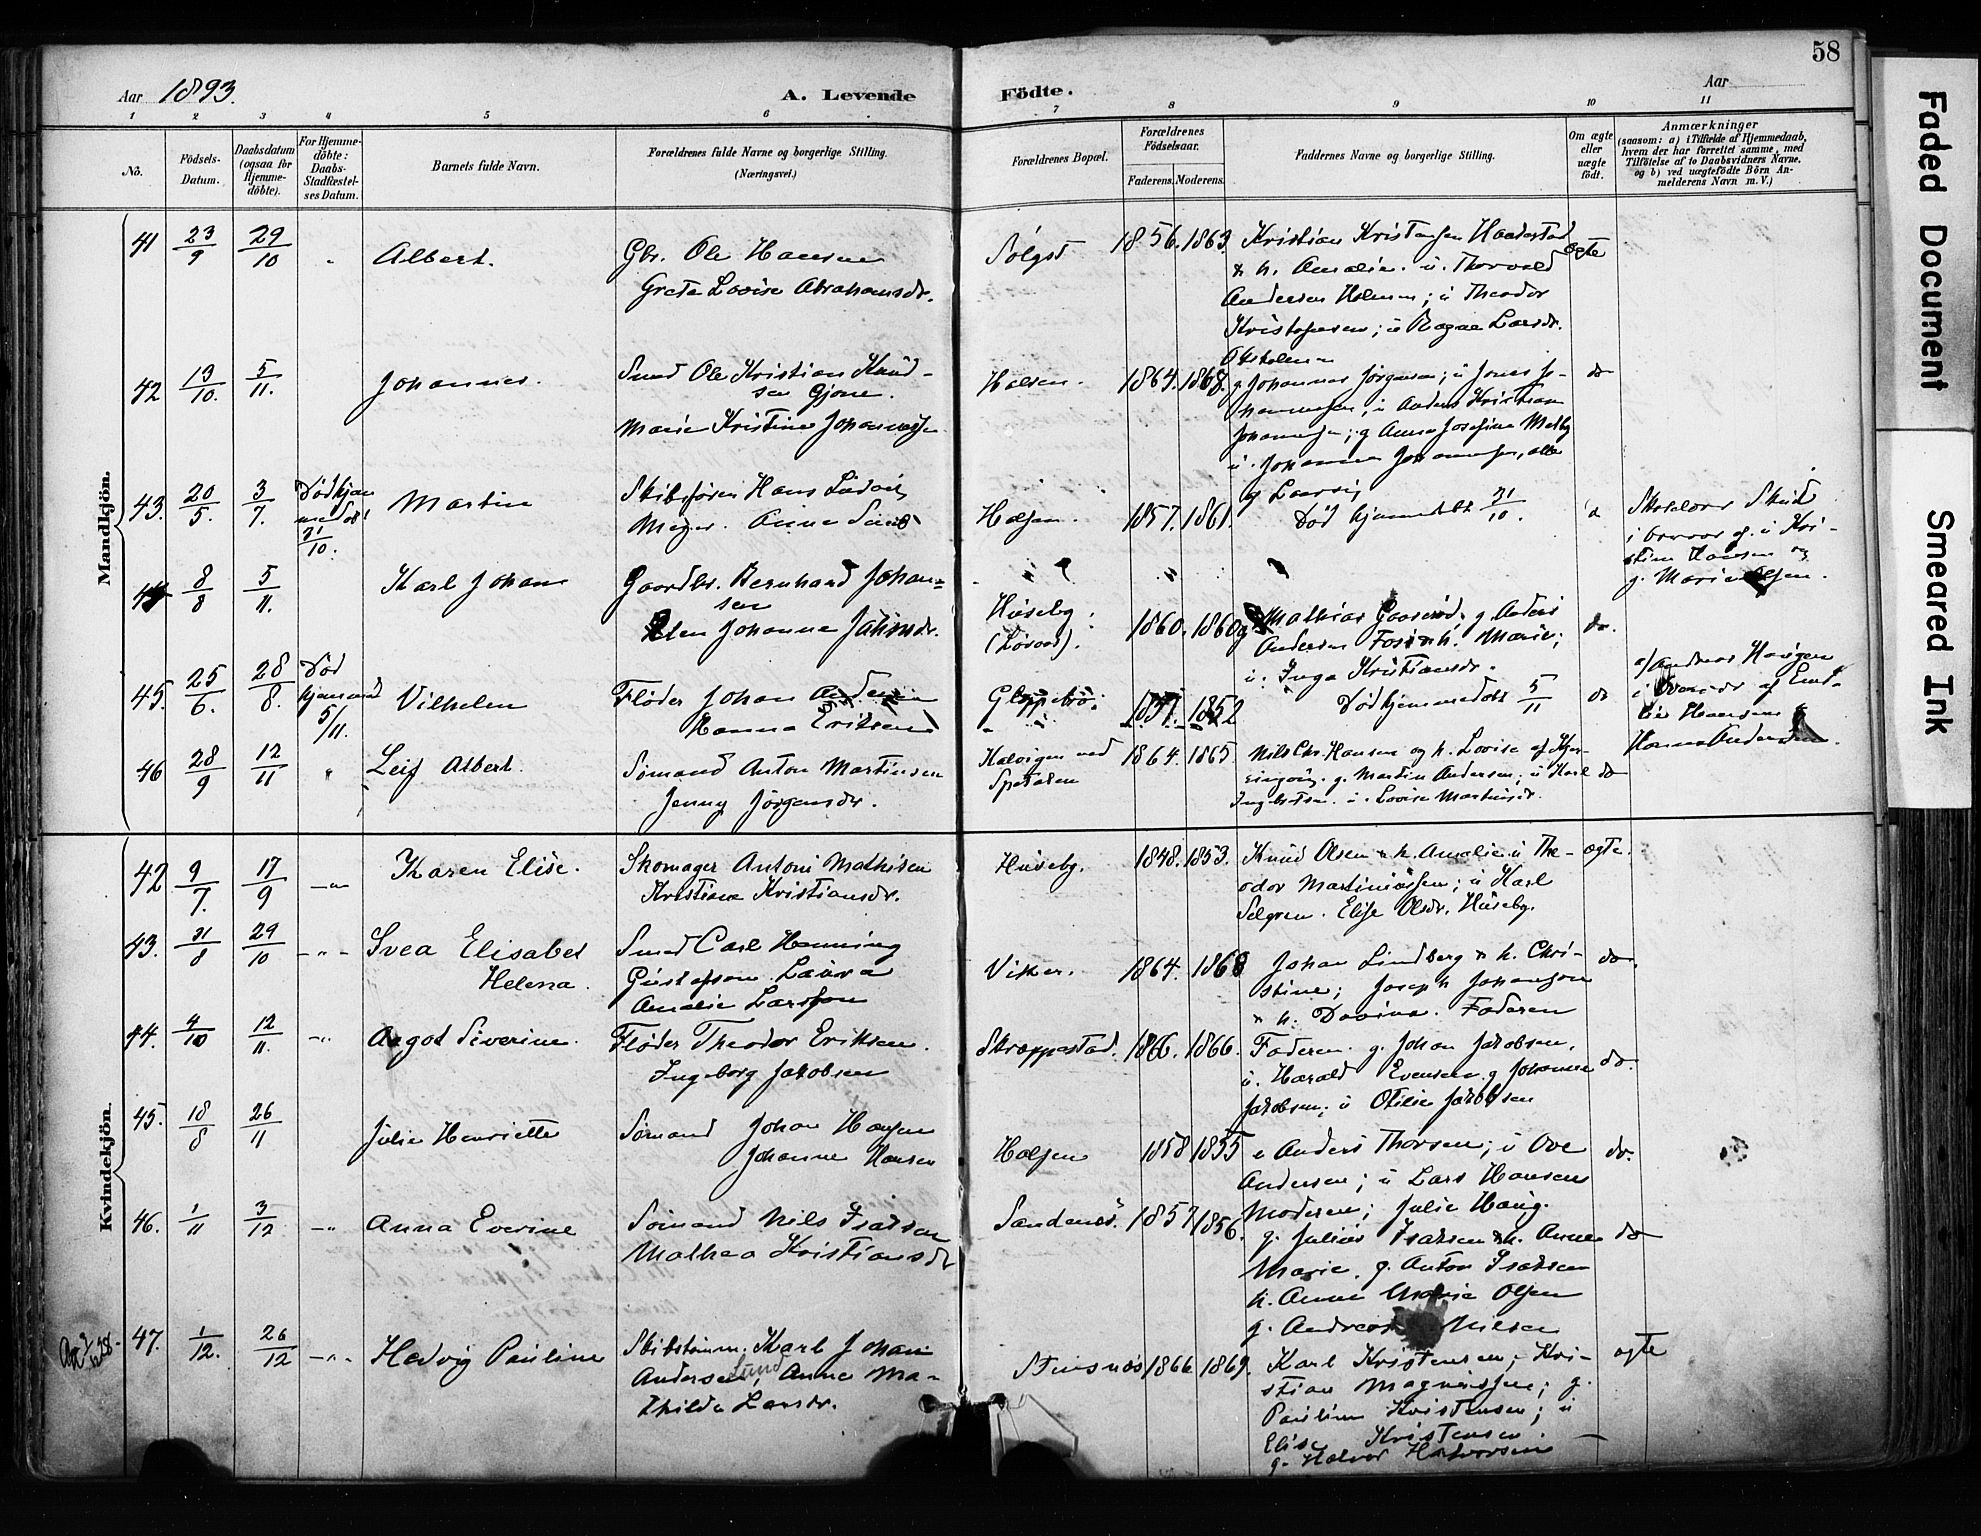 58
Aar 1893.
A. Levende Födte.
Aar
1 2 3 4 5 6 7 8 9 10 11
No.
Födsels-
Datum.
Daabsdatum
(ogsaa for
Hjemme-
döbte).
For Hjemme-
döbte:
Daabs-
Stadfæstel-
ses Datum.
Barnets fulde Navn.
Forældrenes fulde Navne og borgerlige Stilling.
(Næringsvei.)
Forældrenes Bopæl.
Forældrenes
Födselsaar.
Faderens. Moderens.
Faddernes Navne og borgerlige Stilling.
Om ægte
eller
uægte
födt.
Anmærkninger
(saasom: a) i Tilfælde af Hjemmedaab,
hvem der har forrettet samme, med
Tilföielse af to Daabsvidners Navne,
og b) ved uægtefödte Börn An-
melderens Navn m. V.)
Mandkjön.
41 23/9 29/10 Albert.
Gbr. Ole Hansen
Grete Lovise Abrahamsdr.
1856. 1863.
Kristian Kristensen
& h. Amalie. u. Thorvald
Andersen Holmen; u Theodor
Kristofersen; u Ragna Larsdr.
ægte
42 13/10. 5/11. Johannes.
Smed Ole Kristian Knud-
sen Gjone.
Marie Kristine
Halsen. 1864. 1868.
g Johannes Jörgensen; u Jonas Jo-
hannessen; u Anders Kristian
Johannesen; g Anna Josefine Melby
u. Johanna Johannesen, alle
af Laurvig
do
43. 20/5. 3/7.
31/10.
Martin
Skibsförer Hans Ludvig
Meyer. Anna
Halsen. 1857. 1861.
Död hjemmedöbt 31/10.
44 8/8 5/11. Karl Johan
Gaardbr. Bernhard Johan-
sen
Elen Johanne
Huseby. 1860. 1860
Mathias g. Anders
Andersen & h. Marie;
u. Inga Kristiansdr.
do.
g. Marie Olsen.
45. 25/6. 28/8. Död
5/11.
Vilhelm
Fløder Johan Andersen
Hanna Eriksen
1852
Död hjemmedöbt 5/11
do
a) Andreas Haugen
Hansen &
Hanna Andersen.
46 28/9 12/11 " Leif Albert.
Sömand Anton Martinsen
Jenny Jörgensdr.
Kalvigen ved
1864. 1865
Nils Chr. Hansen og h. Lovise af
g. Martin Andersen; u Karl
u. Lovise Martinsdr.
do
Kvindekjön.
42 9/7. 17/9 -"- Karen Elise.
Skomager Antoni Mathisen
Kristiane Kristiansdr.
Huseby. 1848. 1853.
Knud Olsen & h. Amalie. u The-
odor Martiniussen; u Karl
Selgren. Elise Olsdr. Huseby.
ægte.
43. 31/8 29/10 -"- Svea Elisabet
Helena.
Smed Carl Henning
Gustafsson. Laura
Amalie Larsson
Viker. 1864. 1868
Johan Lindberg & h. Chri-
stine; Joseph Johansson
& h. Davina. Faderen
do.
44. 4/10 12/11. -"- Aagot Severine.
Fløder Theodor Eriksen.
Ingeborg Jakobsen
Skræppestad. 1866. 1866.
Faderen. g. Johan Jakobsen.
u. Harald Evensen. g Johanne
Jakobsen; u Otilie Jakobsen
do.
45. 18/8 26/11 Julie Henriette
Sömand Johan Haugen
Johanne Hansen
Halsen 1858 1855
e Anders Thorsen; u Ove
Andersen; u Lars Hansen
Moderen; Julie Haug.
do.
46. 1/11 3/12 -"- Anna Everine
Sömand Nils Isaksen
Mathea Kristiansdr
Sandenæs. 1857 1856.
g. Julius Isaksen & h. Anne
Marie. g. Anton Isaksen
h. Anne Marie Olsen
g. Andreas Nilsen
do
47. 1/12. 26/12 -"- Hedvig Pauline
Skibstömm. Karl Johan
Andersen, Lund Anna Ma-
thilde Larsdr.
1866 1869.
Karl Kristensen; Kri-
stian Magnussen; g.
Pauline Kristensen; u
Elise Kristensen.
g. Halvor Halvorsen
ægte
Faded Document
Smeared Ink